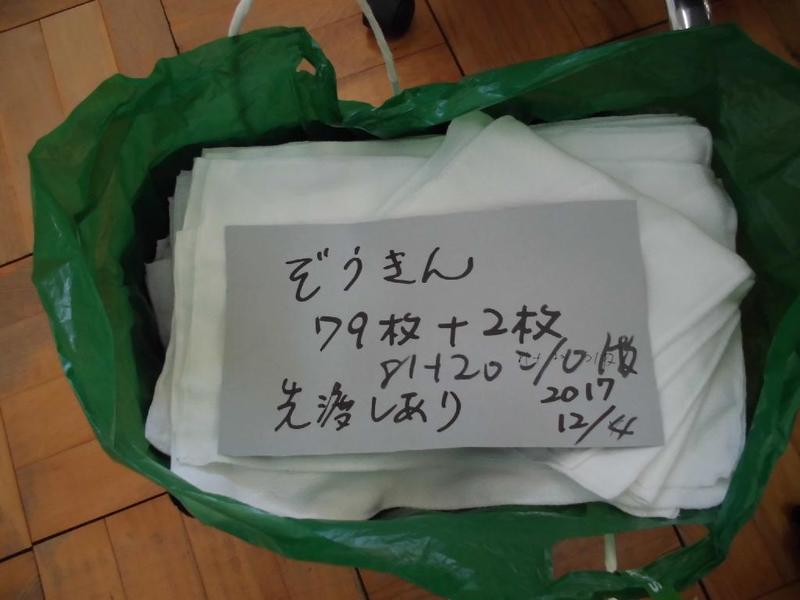 ぞうきん
79枚+2枚
81+20=101枚
先渡しあり
2017
12/4